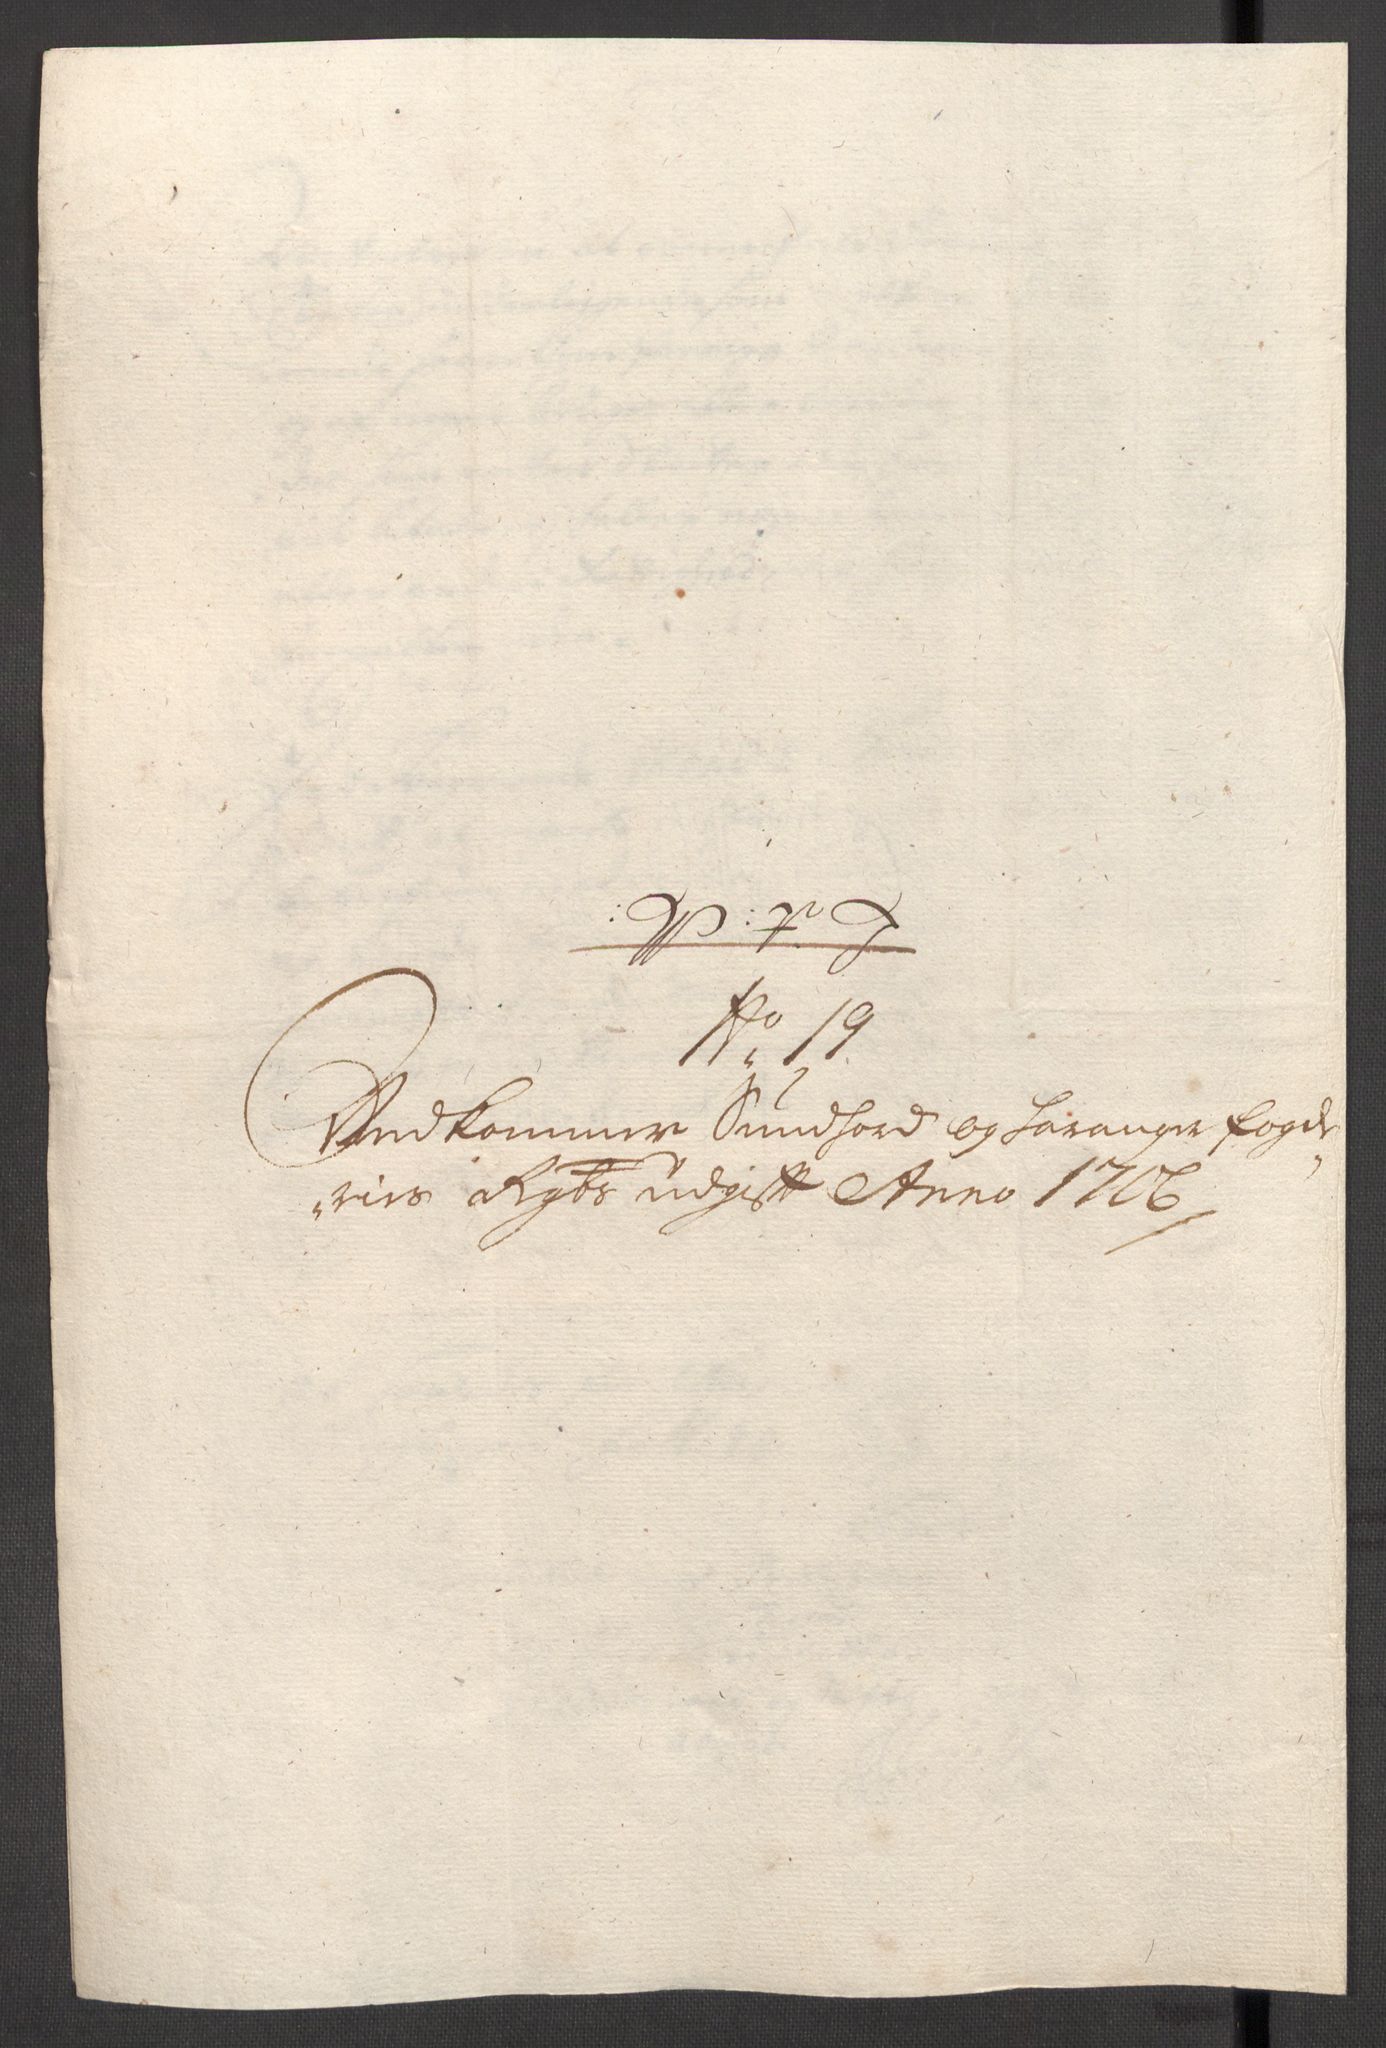 No. 19.
Vedkommer Sundhord og Hardanger fogde„
„riers Rgbs udgift Anno 1706